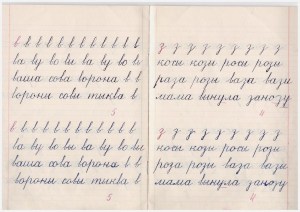 в в в в в в в в в в в
ва ву во вы ва ву во в
ваша сова ворона в в
вороны совы тыква в в
5
в в в в в в в в в в в
ва ву во вы ва ву во в
ваша сова ворона в в
вороны совы тыква в
5
з з з з з з з з з
косы козы росы розы
роза розы ваза вазы
мама вынула занозу
4
з з з з з з з з з
косы козы росы розы
роза розы ваза вазы
мама вынула занозу
4